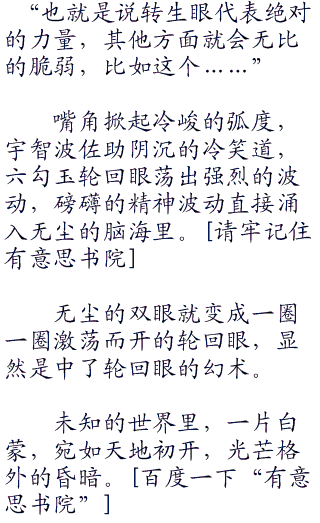 “也就是说转生眼代表绝对
的力量，其他方面就会无比
的脆弱，比如这个……”
嘴角掀起冷峻的弧度，
宇智波佐助阴沉的冷笑道，
六勾玉轮回眼荡出强烈的波
动，磅礴的精神波动直接涌
入无尘的脑海里。[请牢记住
有意思书院]
无尘的双眼就变成一圈
一圈激荡而开的轮回眼，显
然是中了轮回眼的幻术。
未知的世界里，一片白
蒙，宛如天地初开，光芒格
外的昏暗。[百度一下“有意
思书院”]